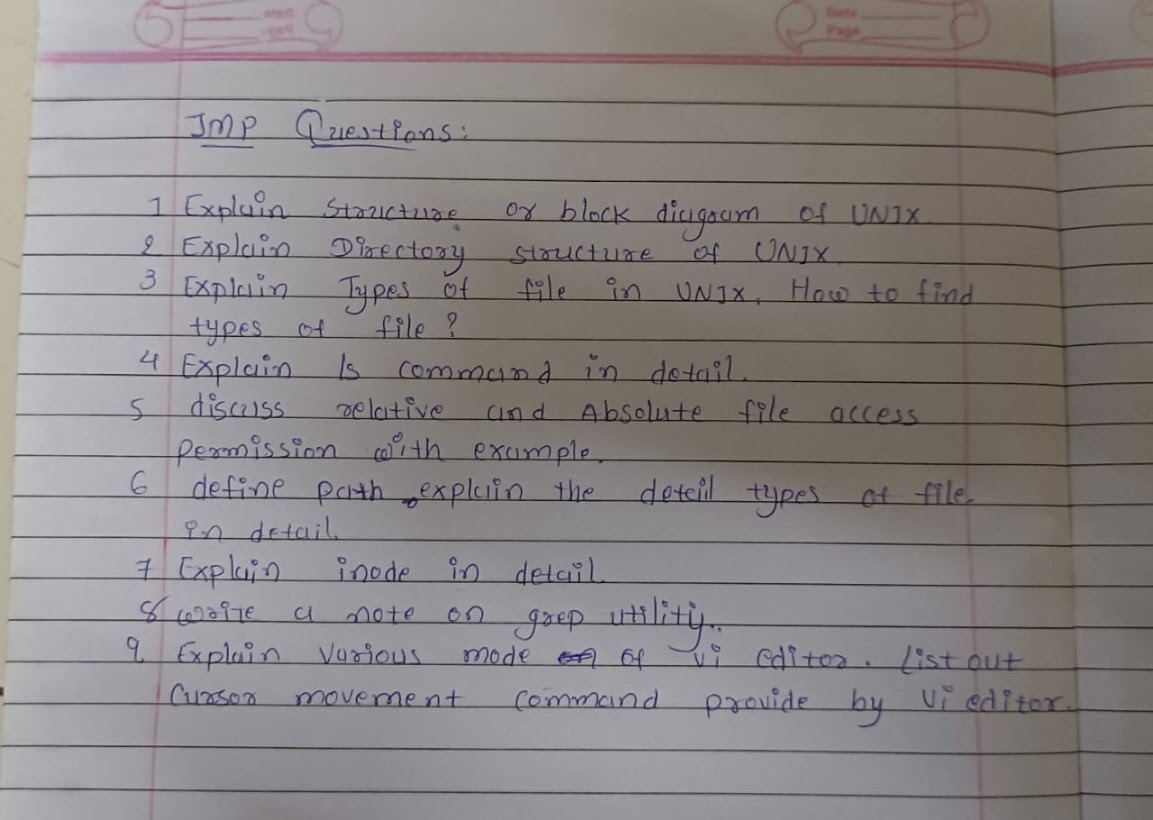 Date
Page
IMP Questions:
1 Explain Structure or block diagram of UNIX
2 Explain Directory structure of UNIX
3 Explain Types of file in UNIX. How to find
types of file ?
4 Explain ls command in detail.
5 discuss relative and Absolute file access
permission with example.
6 define path explain the detail types of file.
in detail.
7 Explain inode in detail
8 write a note on grep utility..
9 Explain Various mode of vi editor. List out
Cursor movement command provide by Vi editor.